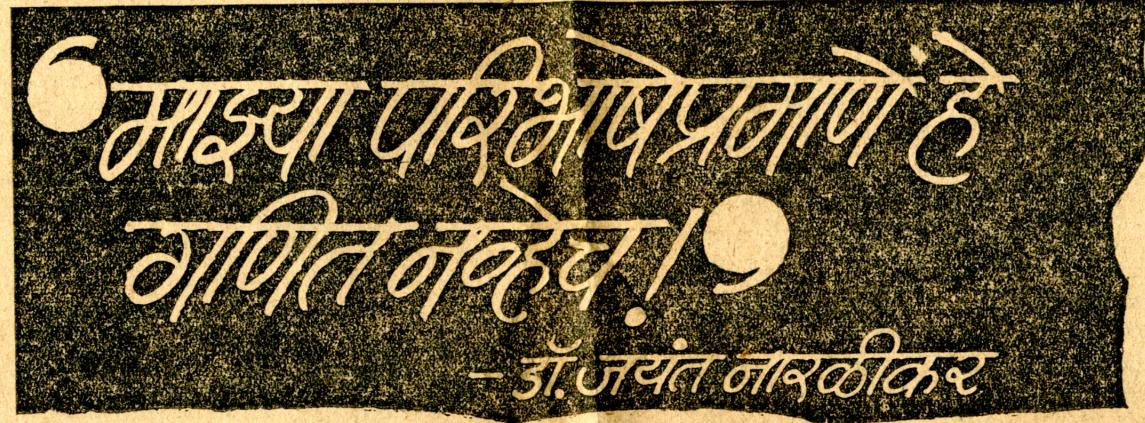 ‘माझ्या परिभाषेप्रमाणे हे
गणित नव्हेच!’
- डॉ. जयंत नारळीकर